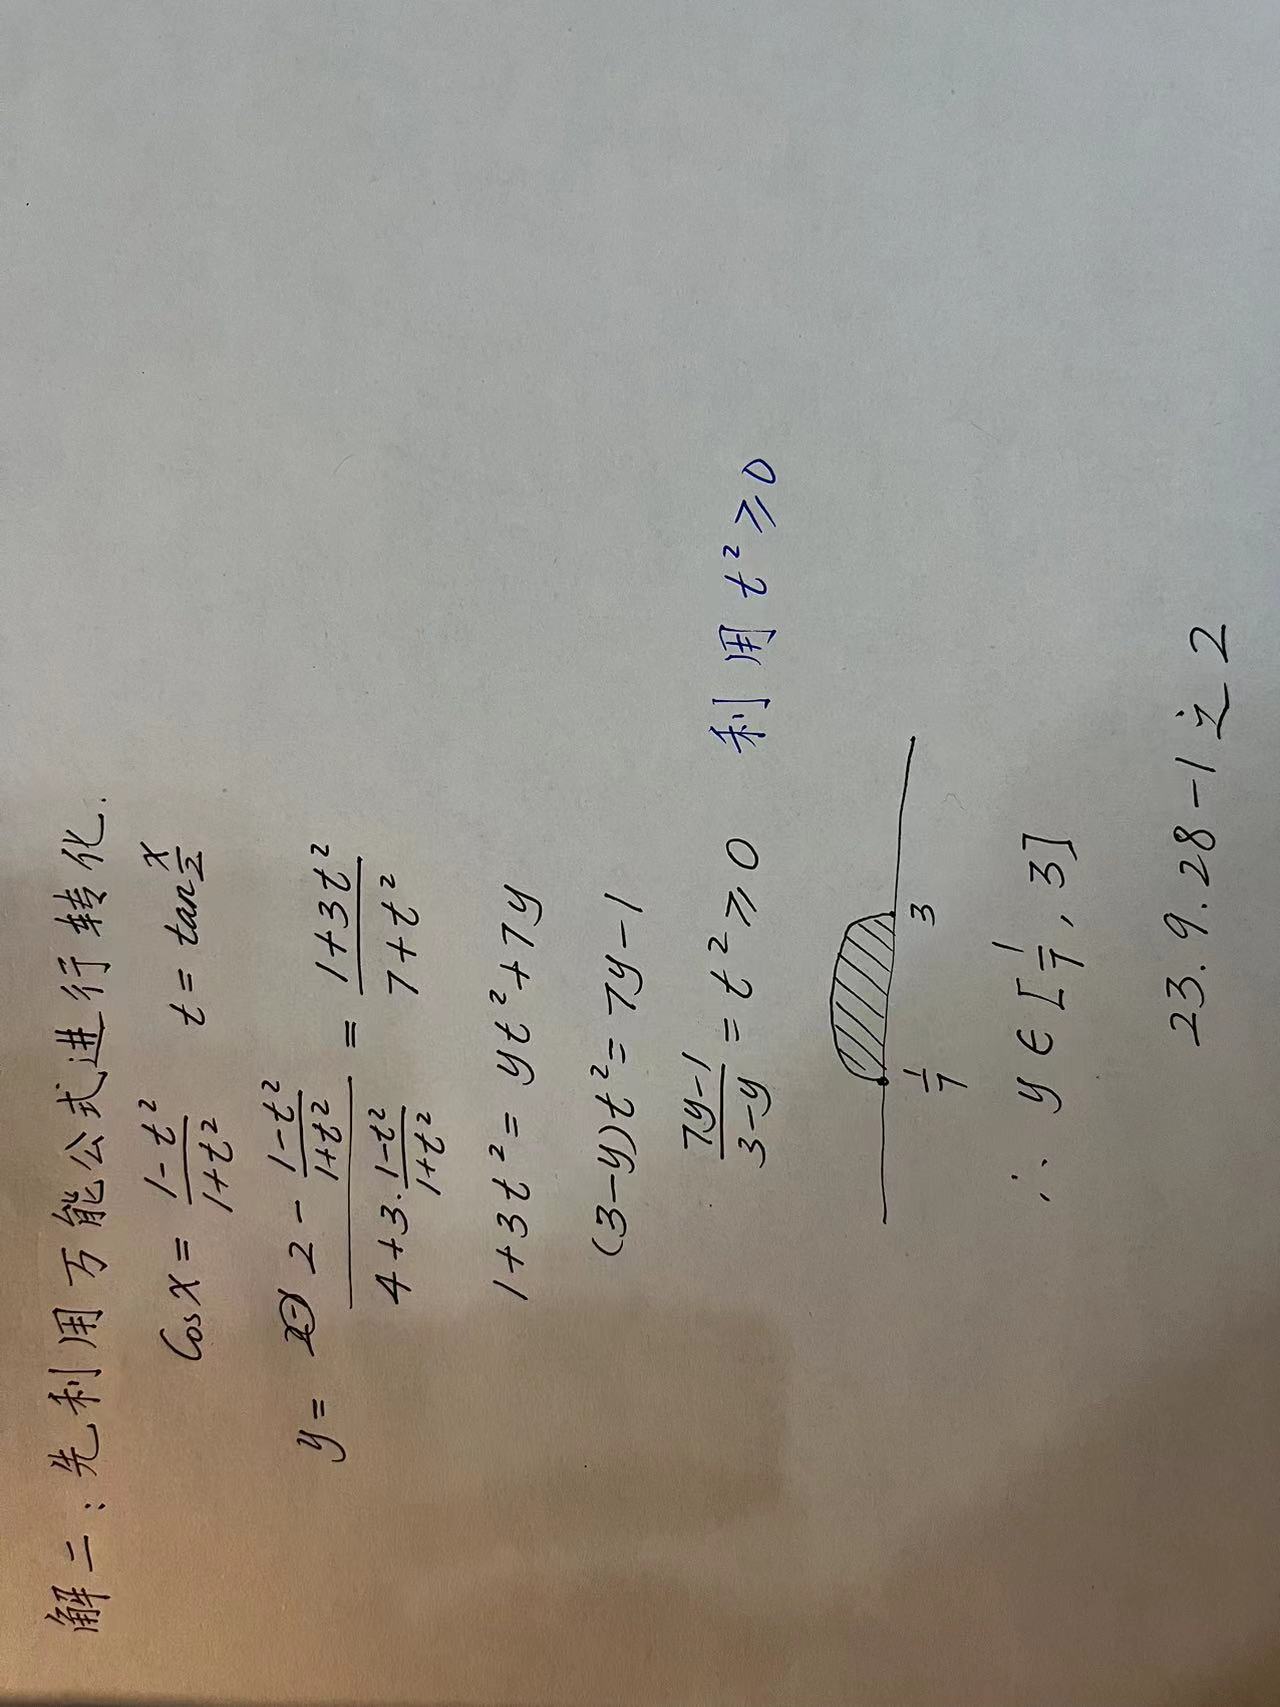 解二：先利用万能公式进行转化.
Cosx = (1-t²)/(1+t²)  t = tan x/2
y = (2 - (1-t²)/(1+t²))/(4+3·(1-t²)/(1+t²)) = (1+3t²)/(7+t²)
1+3t² = yt²+7y
(3-y)t² = 7y-1
(7y-1)/(3-y) = t² ⩾ 0  利用 t² ⩾ 0
1/7  3
∴ y ∈ [1/7, 3]
23.9.28-1之2